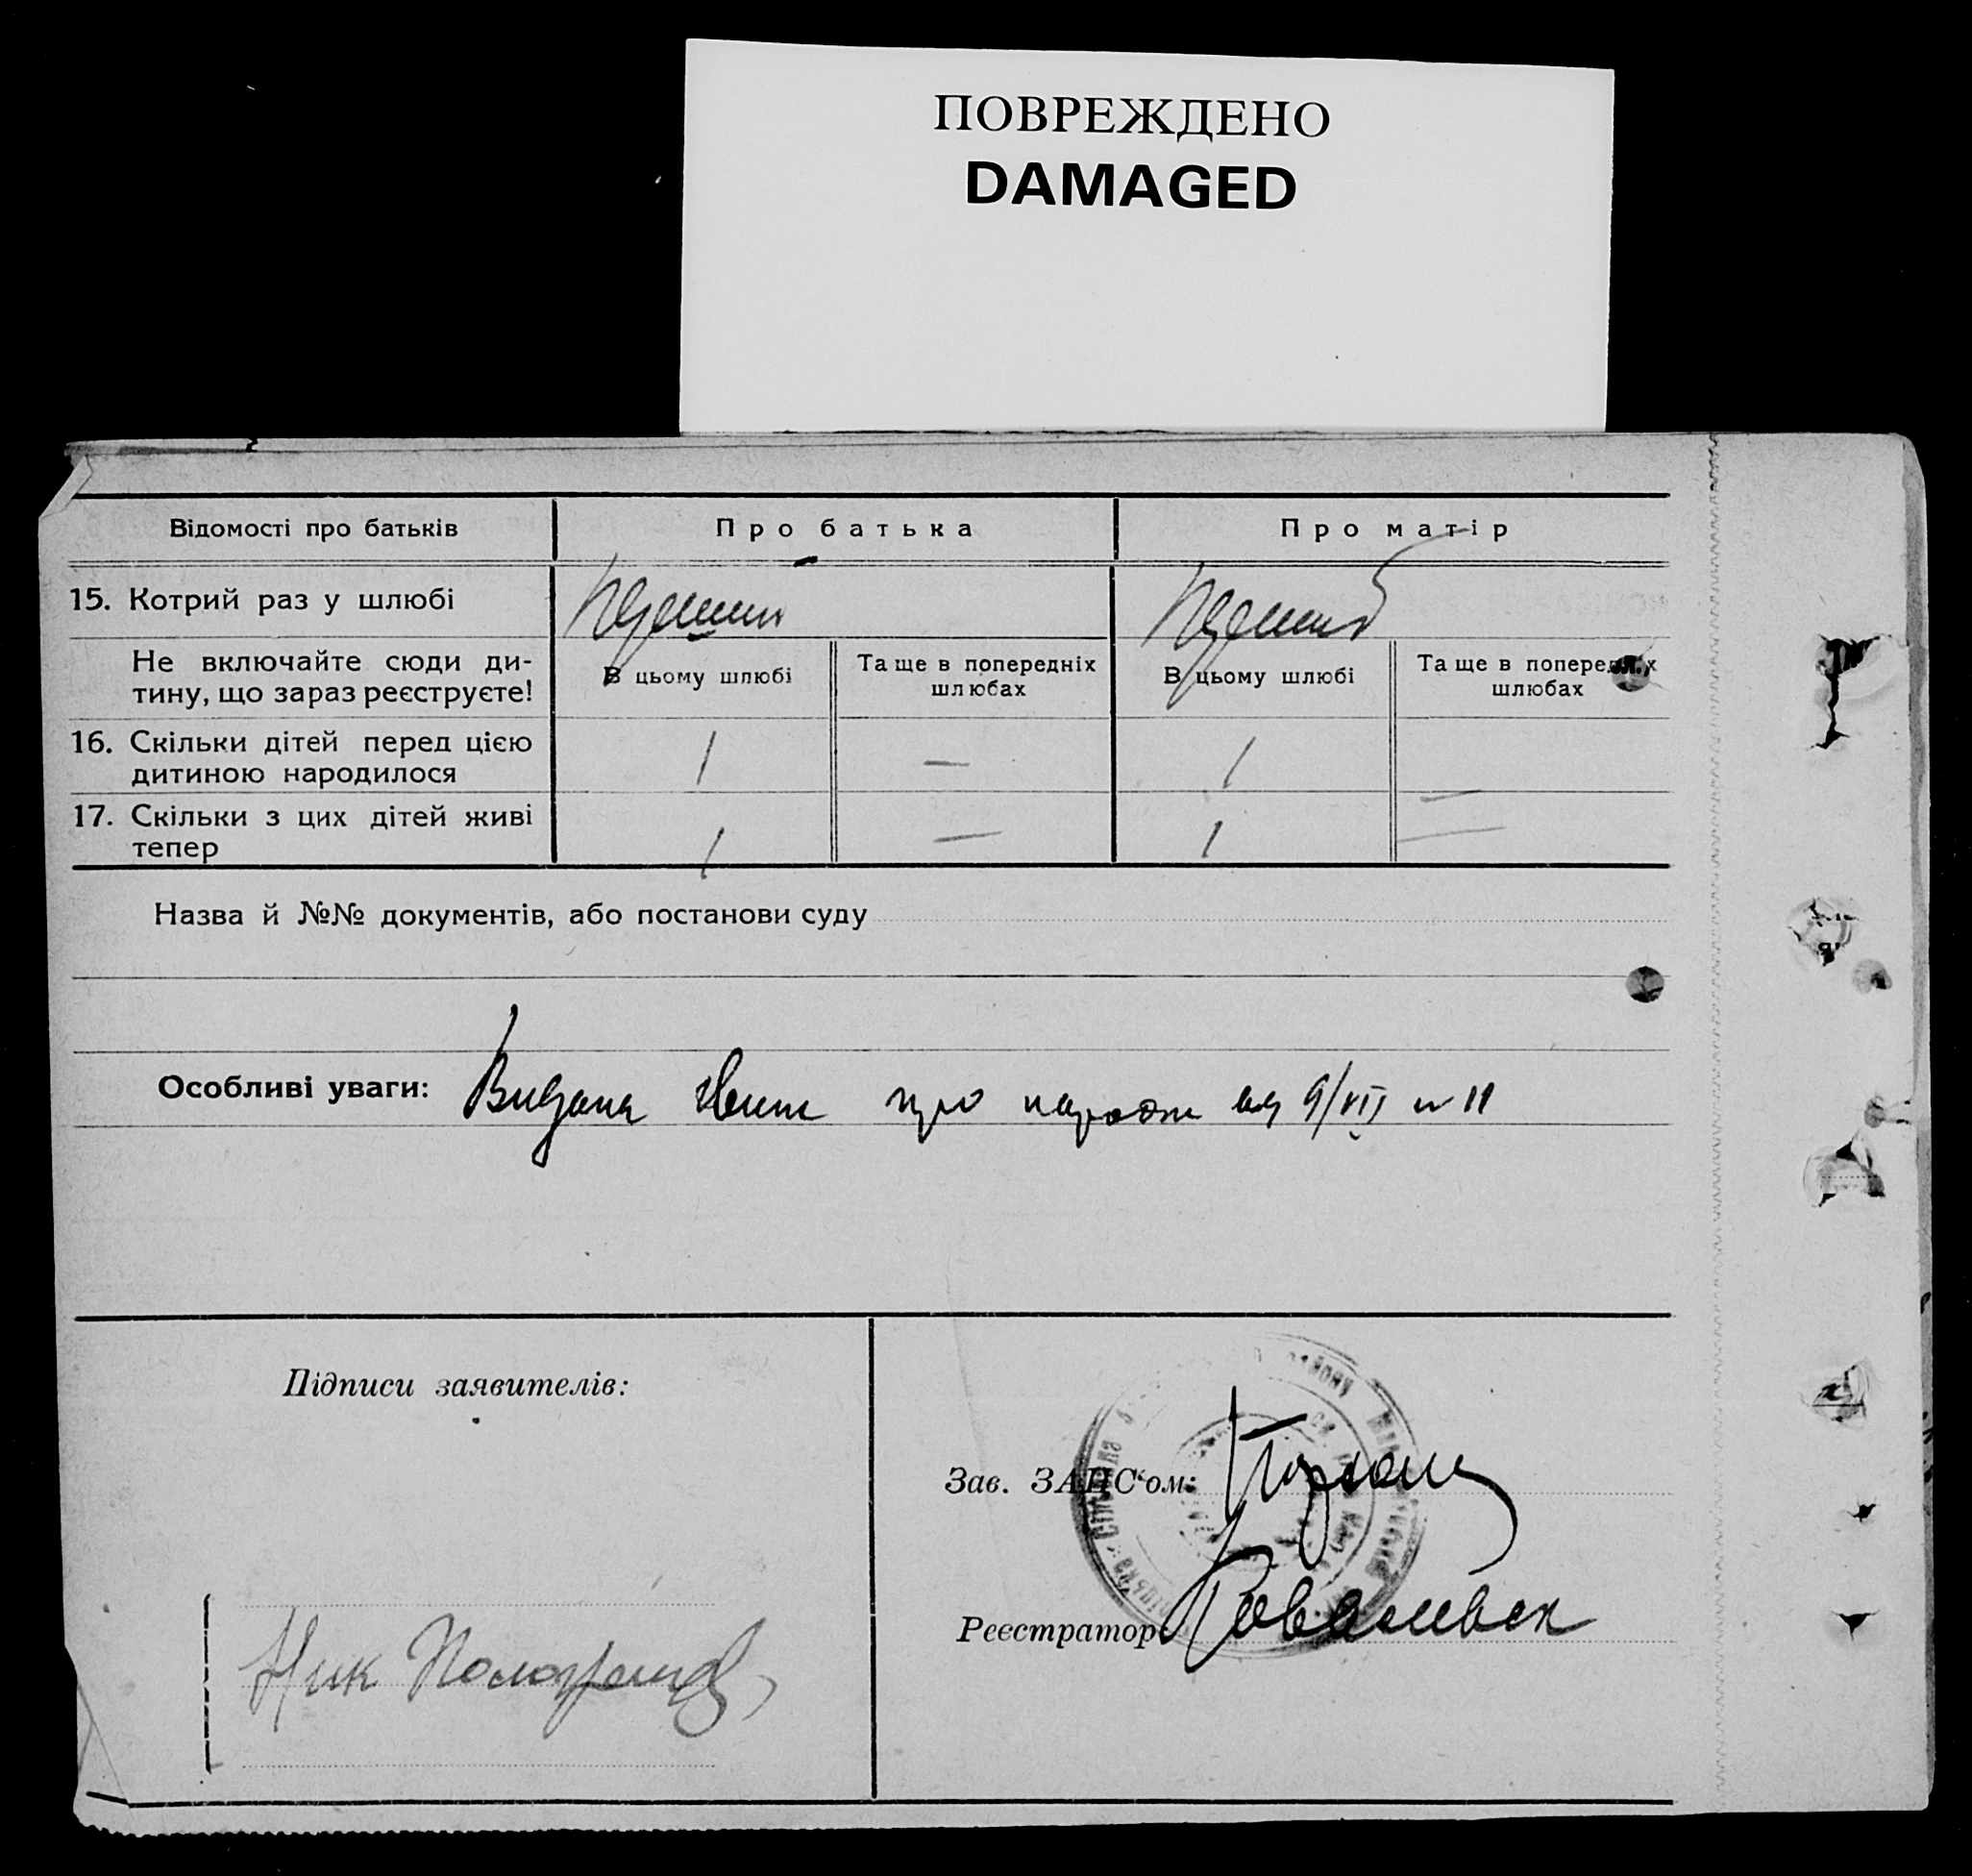 ПОВРЕЖДЕНО
DAMAGED
Відомості про батьків
Про батька
Про матір
15. Котрий раз у шлюбі
Не включайте сюди ди-
тину, що зараз реєструєте!
В цьому шлюбі
Та ще в попередніх
шлюбах
В цьому шлюбі
Та ще в попередніх
шлюбах
16. Скільки дітей перед цією
дитиною народилося
1
—
1
—
17. Скільки з цих дітей живі
тепер
1
—
1
—
Назва й №№ документів, або постанови суду
Особливі уваги: Видана про 9/VII № 11
Підписи заявителів:
Зав. ЗАГС'ом:
Реєстратор
Ник